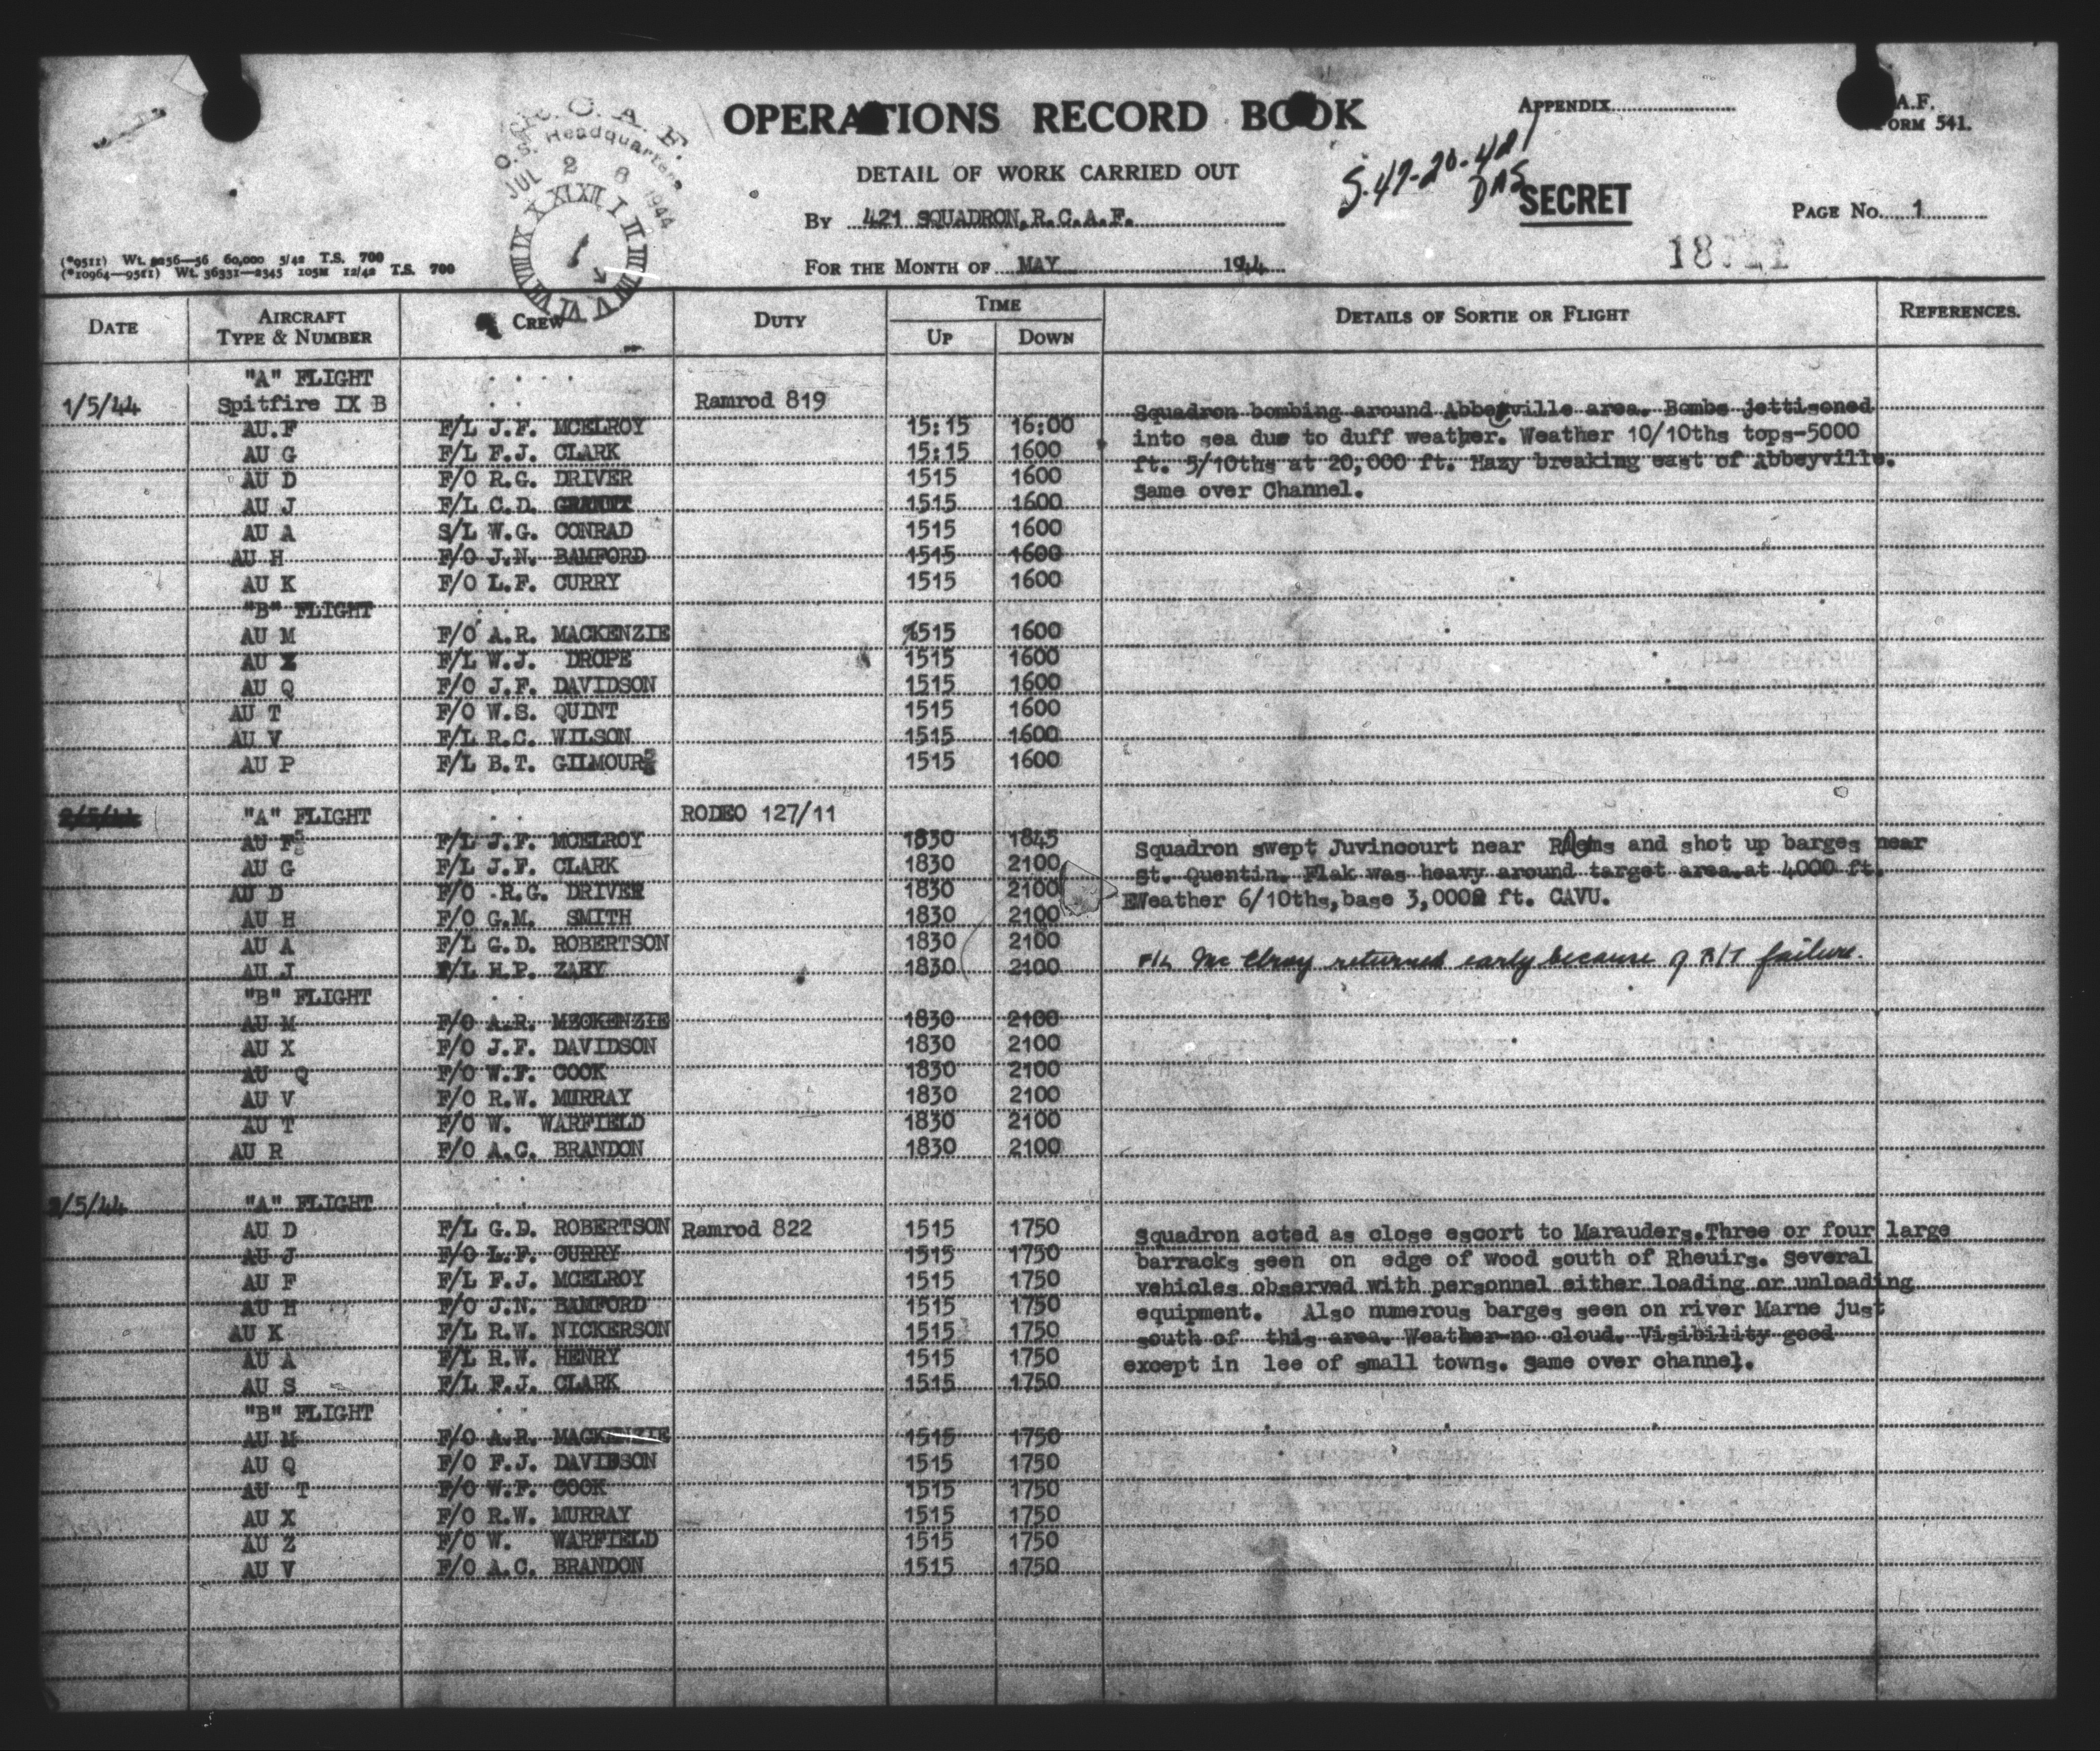 OPERATIONS RECORD BOOK
APPENDIX
FORM 541.
DETAIL OF WORK CARRIED OUT
S.47-20-421
DAS
SECRET
By 421 SQUADRON, R.C.A.F.
PAGE No. 1
FOR THE MONTH OF MAY 1944
O.S. Headquarters
JUL 28 1944
XII I II III IV V VI VII VIII IX X XI
(*10964—9511) Wt. 36331—2345 105M 12/42 T.S. 700
DATE AIRCRAFT TYPE & NUMBER CREW DUTY TIME UP DOWN DETAILS OF SORTIE OR FLIGHT REFERENCES.
"A" FLIGHT
1/5/44 Spitfire IX B Ramrod 819
AU.F F/L J.F. MCELROY 15:15 16:00
AU G F/L F.J. CLARK 15:15 1600
AU D F/O R.G. DRIVER 1515 1600
AU J F/L C.D. 1515 1600
AU A S/L W.G. CONRAD 1515 1600
AU H F/O J.N. BAMFORD 1515 1600
AU K F/O L.F. CURRY 1515 1600
Squadron bombing around Abbeyville area. Bombs jettisoned
into sea due to duff weather. Weather 10/10ths tops-5000
ft. 5/10ths at 20,000 ft. Hazy breaking east of Abbeyville.
Same over Channel.
"B" FLIGHT
AU M F/O A.R. MACKENZIE 1515 1600
AU F/L W.J. DROPE 1515 1600
AU Q F/O J.F. DAVIDSON 1515 1600
AU T F/O W.S. QUINT 1515 1600
AU V F/L R.C. WILSON 1515 1600
AU P F/L B.T. GILMOUR 1515 1600
"A" FLIGHT RODEO 127/11
AU F F/L J.F. MCELROY 1830 1845
AU G F/L J.F. CLARK 1830 2100
AU D F/O R.G. DRIVER 1830 2100
AU H F/O G.M. SMITH 1830 2100
AU A F/L G.D. ROBERTSON 1830 2100
AU J F/L H.P. ZARY 1830 2100
Squadron swept Juvincourt near and shot up barges near
St. Quentin. Flak was heavy around target area.at 4000 ft.
Weather 6/10ths,base 3,000 ft. CAVU.
F/L McElroy returned early because of R/T failure.
"B" FLIGHT
AU M F/O A.R. MSCKENZIE 1830 2100
AU X F/O J.F. DAVIDSON 1830 2100
AU Q F/O W.F. COOK 1830 2100
AU V F/O R.W. MURRAY 1830 2100
AU T F/O W. WARFIELD 1830 2100
AU R F/O A.C. BRANDON 1830 2100
2/5/44 "A" FLIGHT
AU D F/L G.D. ROBERTSON Ramrod 822 1515 1750
AU J F/O L.F. CURRY 1515 1750
AU F F/L F.J. MCELROY 1515 1750
AU H F/O J.N. BAMFORD 1515 1750
AU K F/L R.W. NICKERSON 1515 1750
AU A F/L R.W. HENRY 1515 1750
AU S F/L F.J. CLARK 1515 1750
Squadron acted as close escort to Marauders.Three or four large
barracks seen on edge of wood south of Rheuirs. Several
vehicles observed with personnel either loading or unloading
equipment. Also numerous barges seen on river Marne just
south of this area. Weather-no cloud. Visibility good
except in lee of small towns. Same over channel.
"B" FLIGHT
AU M F/O A.R. MACKENZIE 1515 1750
AU Q F/O F.J. DAVIDSON 1515 1750
AU T F/O W.F. COOK 1515 1750
AU X F/O R.W. MURRAY 1515 1750
AU Z F/O W. WARFIELD 1515 1750
AU V F/O A.C. BRANDON 1515 1750